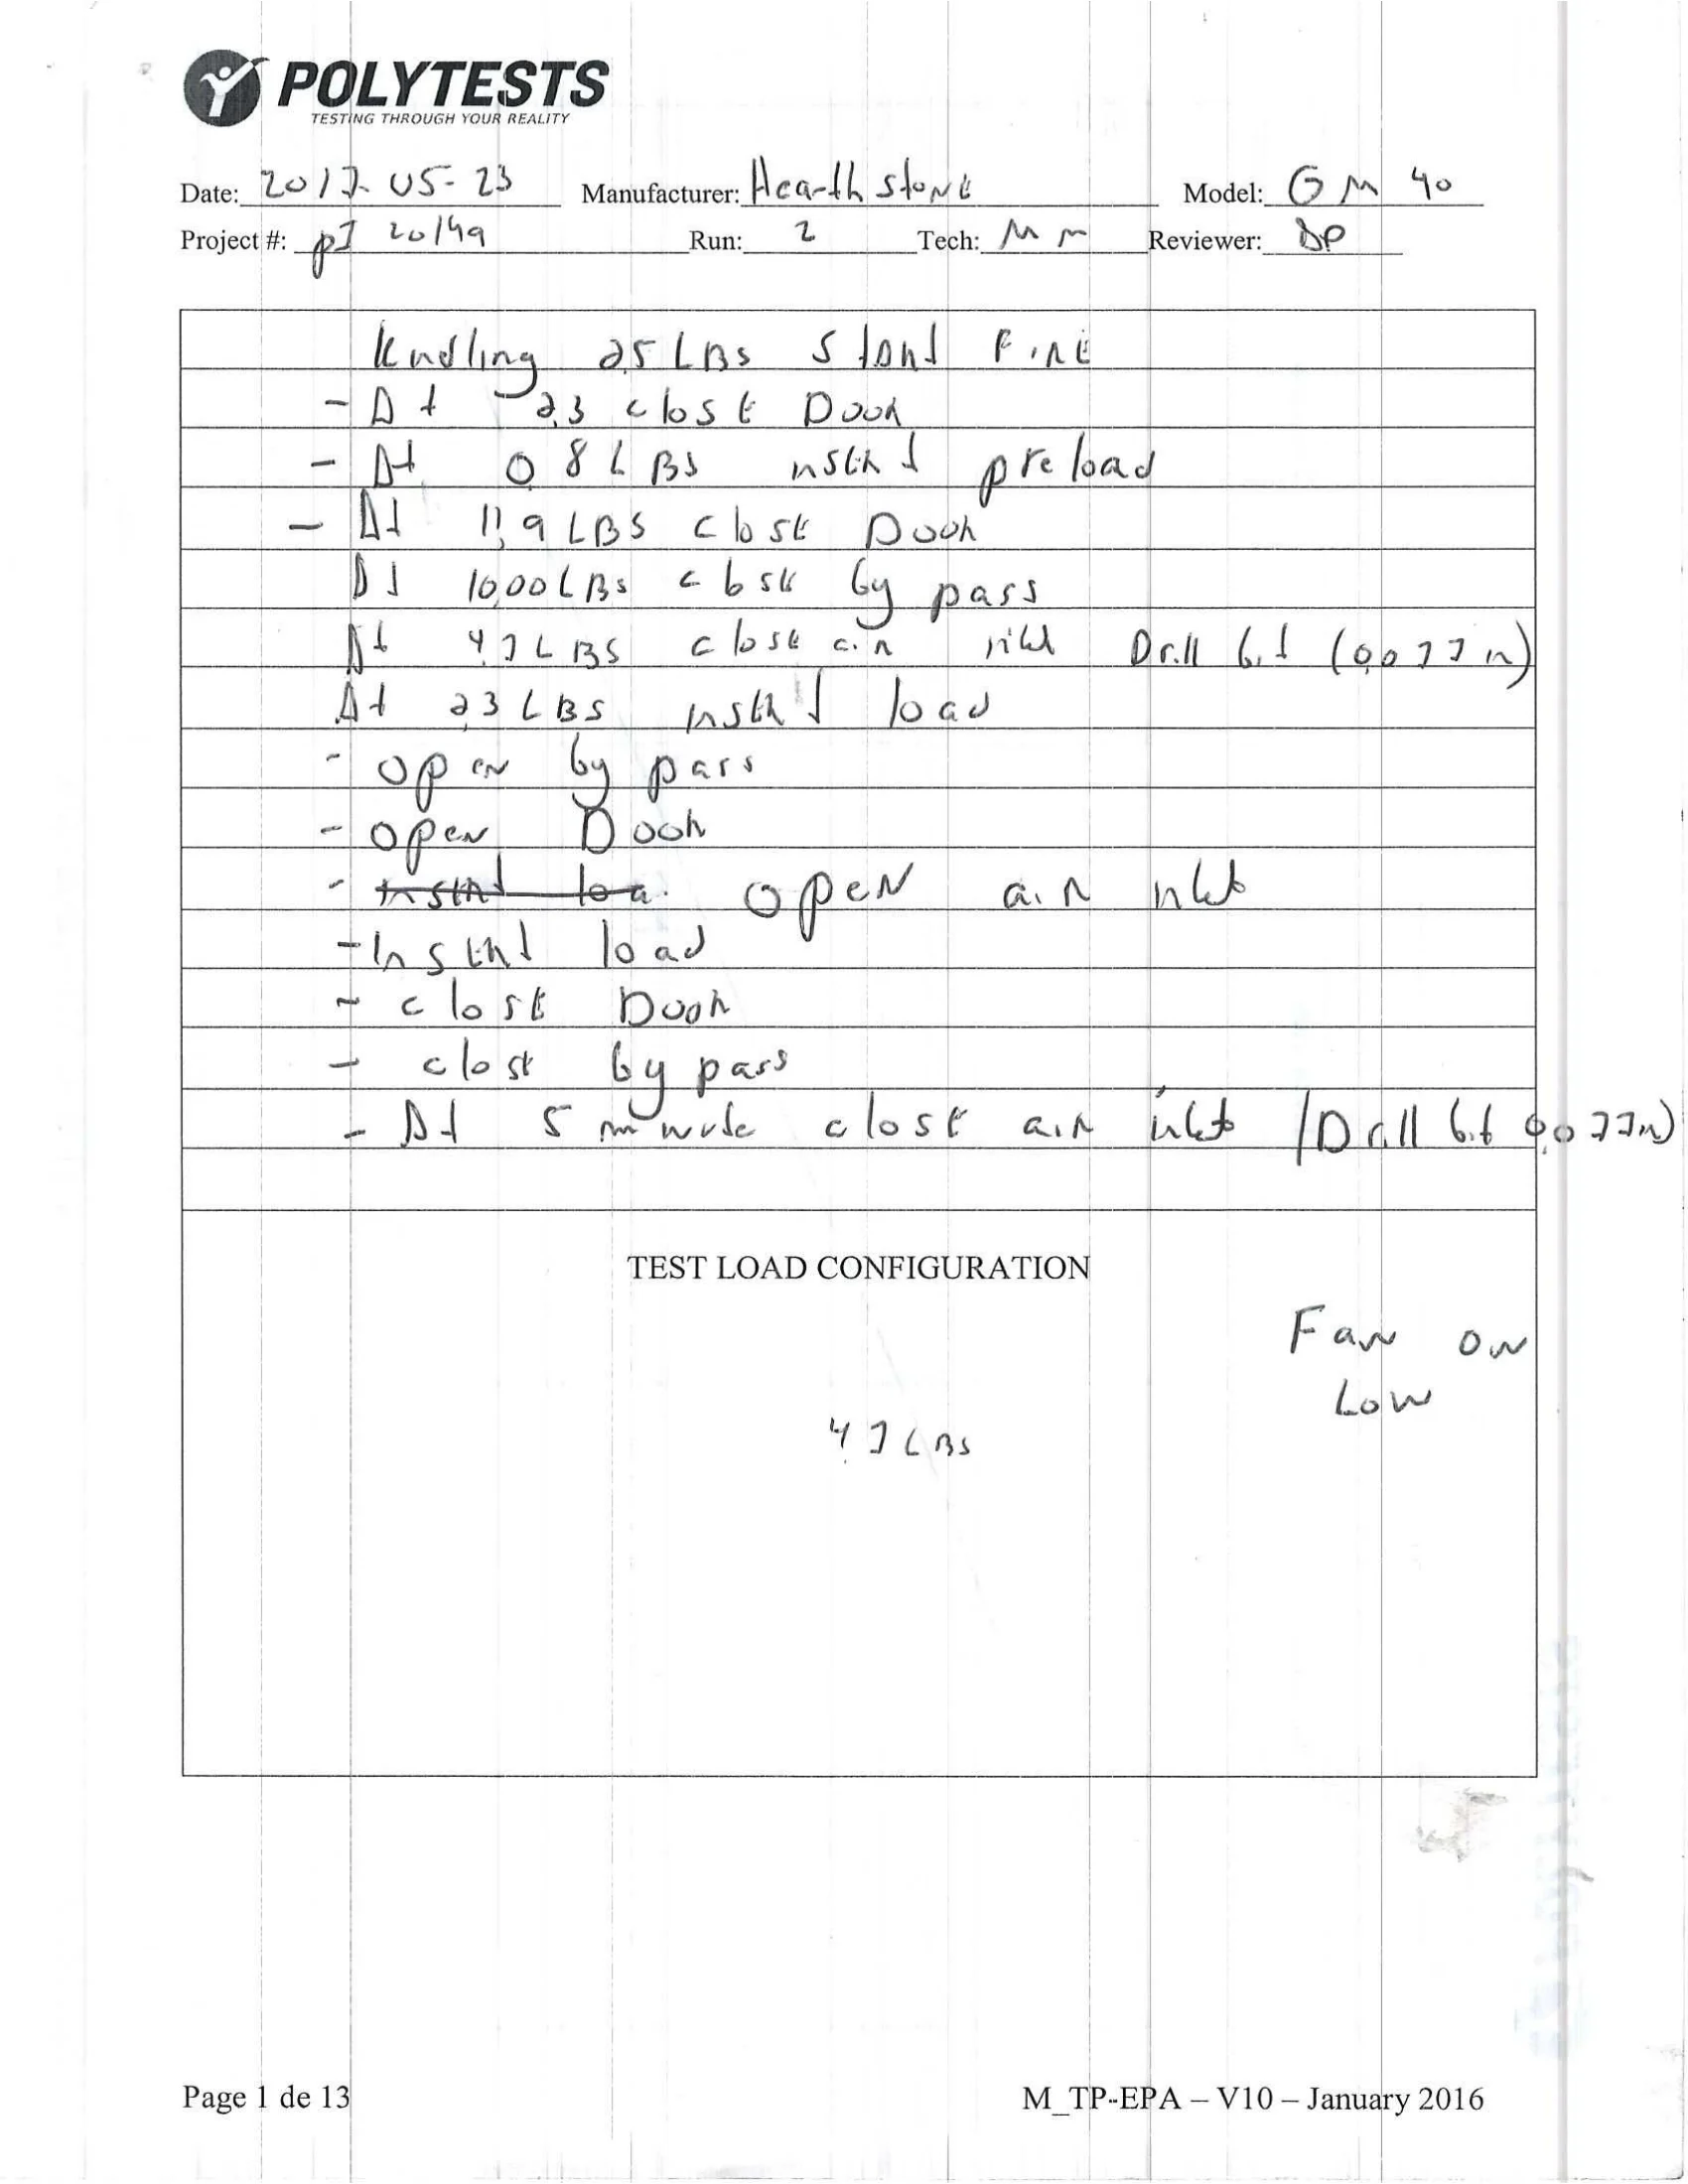 POLYTESTS
TESTING THROUGH YOUR REALITY
Date: 2017-05-23 Manufacturer: Hearthstone Model: GM 40
Project #: pI 20149 Run: 2 Tech: MM Reviewer: DP
Kindling 2,5 LBS Start Fire
- At 2,3 close Door
- At 0,8 LBS insert preload
- At 11,9 LBS close Door
At 10,00 LBS close by pass
At 4,7 LBS close air inlet Drill bit (0,077 in)
At 2,3 LBS insert load
- open by pass
- open Door
- open air inlet
- Insert load
- close Door
- close by pass
- At 5 minute close air inlet (Drill bit 0,077 in)
TEST LOAD CONFIGURATION
Fan on
Low
4,7 LBS
Page 1 de 13 M_TP-EPA – V10 – January 2016